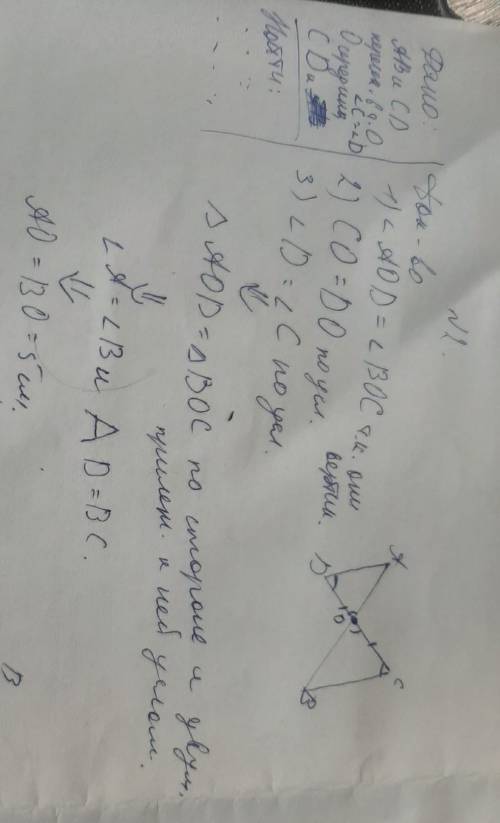 Дано:
AB и CD
перес. в т. O
O середина
∠C=∠D
CD и
Найти:
N2.
Док-во
1) ∠AOD = ∠BOC т.к. они
вертик.
2) CO = DO по усл.
3) ∠D = ∠C по усл.
⇓
△AOD = △BOC по стороне и двум,
прилеж. к ней углам.
⇓
∠A = ∠B и AD = BC.
⇓
AO = BO = 5 см.
A
D
O
C
B
B